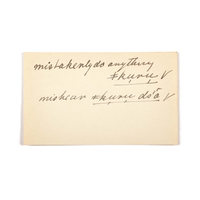 mistakenly do anything
*kuru V
mishear *kuru dsa V